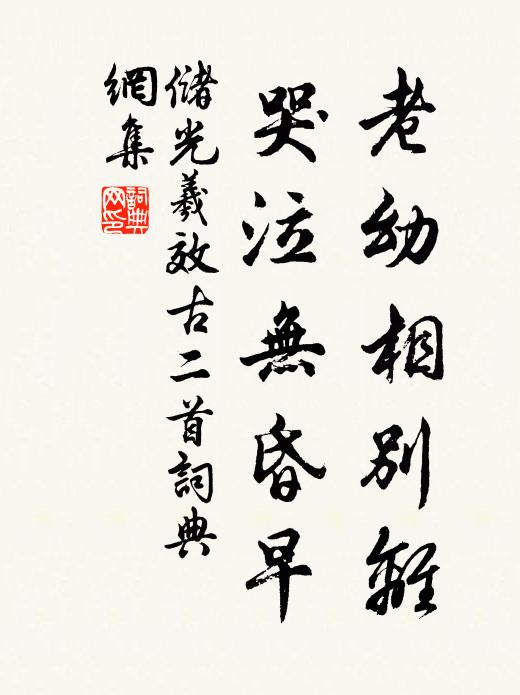 老幼相別離
哭泣無昏早
儲光羲效古二首詞典
網集
詞典網印